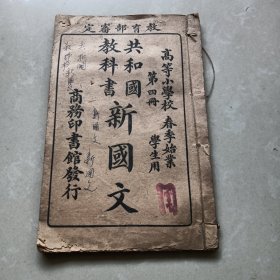 教育部審定
高等小學校
春季始業
學生用
第四冊
共和國
教科書
新國文
商務印書館發行
新國文
新國文